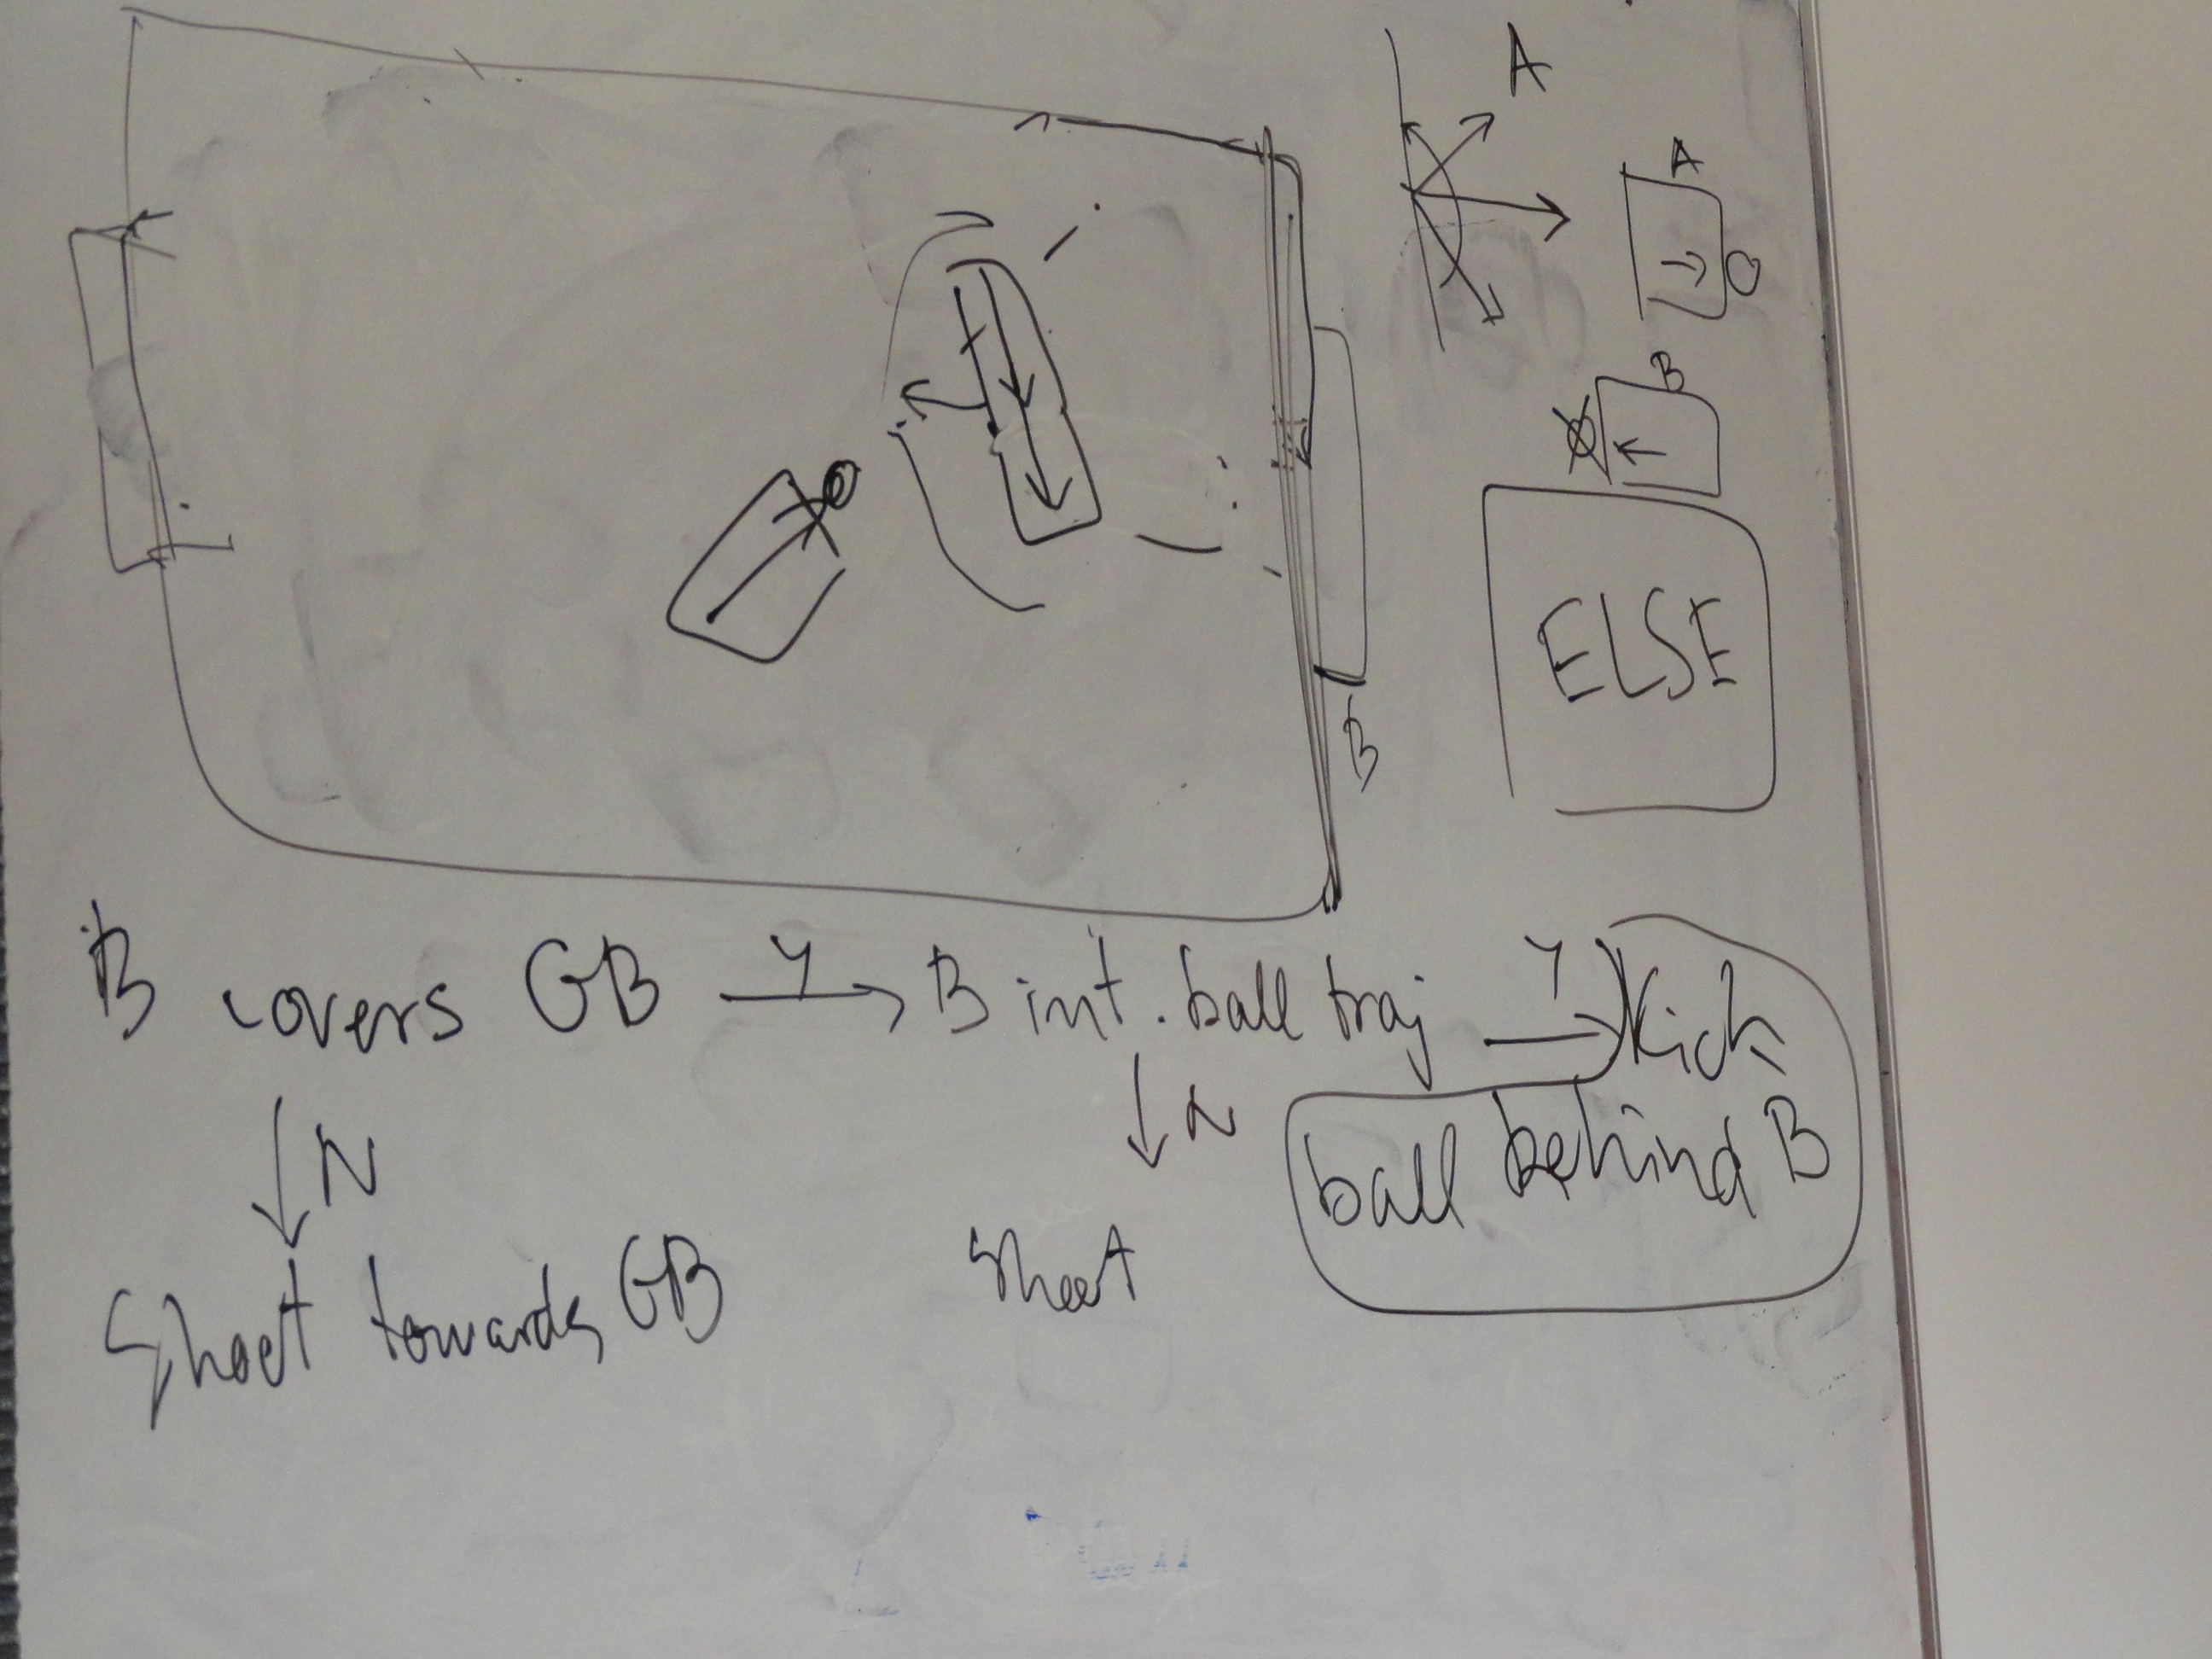 A
A
B
ELSE
B
B covers GB Y B int. ball traj Y Kick
N N ball behind B
Shoot towards GB Shoot